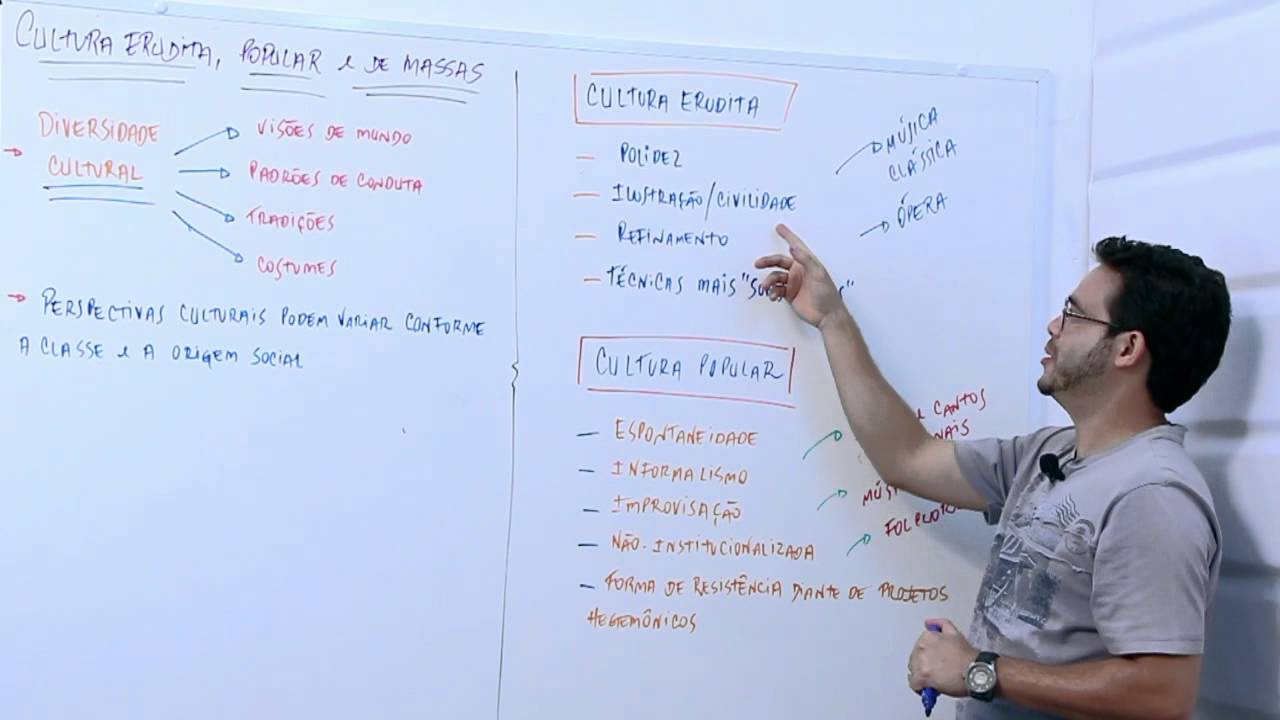 CULTURA ERUDITA, POPULAR e DE MASSAS
DIVERSIDADE
CULTURAL
VISÕES DE MUNDO
PADRÕES DE CONDUTA
TRADIÇÕES
COSTUMES
PERSPECTIVAS CULTURAIS PODEM VARIAR CONFORME
A CLASSE e A ORIGEM SOCIAL
CULTURA ERUDITA
- POLIDEZ
- ILUSTRAÇÃO/CIVILIDADE
- REFINAMENTO
- TÉCNICAS MAIS
MÚSICA
CLÁSSICA
ÓPERA
CULTURA POPULAR
- ESPONTANEIDADE
- INFORMALISMO
- IMPROVISAÇÃO
- NÃO-INSTITUCIONALIZADA
- FORMA DE RESISTÊNCIA DIANTE DE PROJETOS
HEGEMÔNICOS
e CANTOS